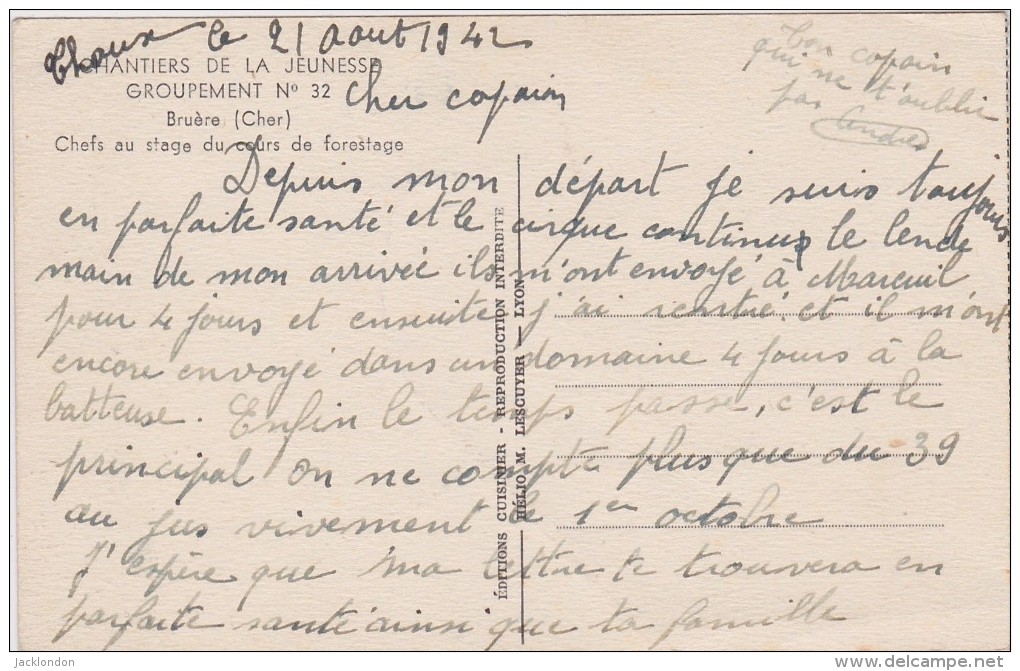 le 21 Aout 1942
CHANTIERS DE LA JEUNESSE
GROUPEMENT Nº 32
Bruère (Cher)
Chefs au stage du cours de forestage
Cher copain
Ton copain
qui ne t'oublie
pas André
Depuis mon départ je suis toujours
en parfaite santé et le cirque continue le lende
main de mon arrivée ils m'ont envoyé à Mareuil
pour 4 jours et ensuite j'ai rentré et il m'ont
encore envoyé dans un domaine 4 jours à la
batteuse. Enfin le temps passe, c'est le
principal on ne compte plus que du 39
au jus vivement le 1er octobre
J'espère que ma lettre te trouvera en
parfaite santé ainsi que ta famille
ÉDITIONS CUISINIER - REPRODUCTION INTERDITE
HÉLIO. M. LESCUYER — LYON
jacklondon
www.delcampe.net